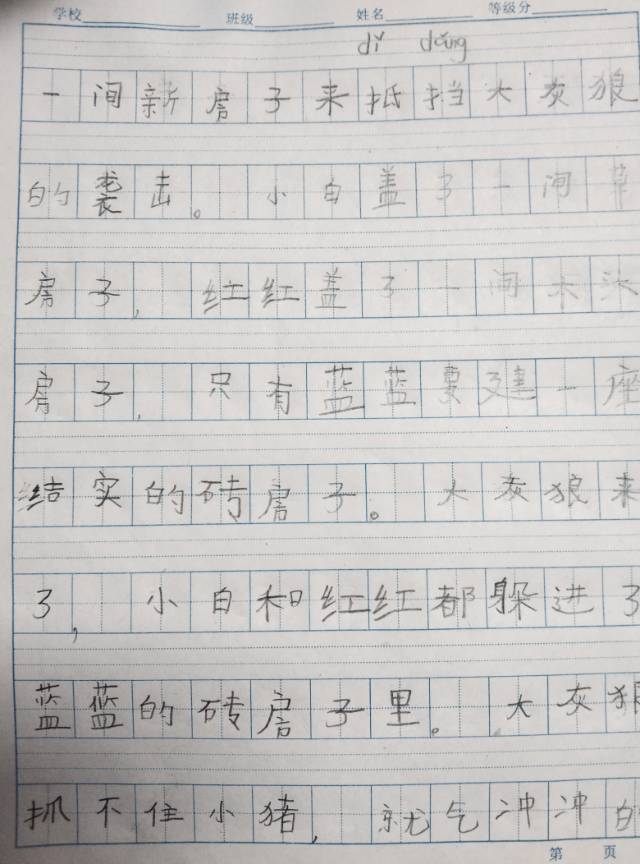 学校 班级 姓名 等级分
dǐ dǎng
一间新房子来抵挡大灰狼
的袭击。小白盖了一间草
房子,红红盖了一间木头
房子,只有蓝蓝要建一座
结实的砖房子。大灰狼来
了,小白和红红都躲进了
蓝蓝的砖房子里。大灰狼
抓不住小猪,就气冲冲的
第 页